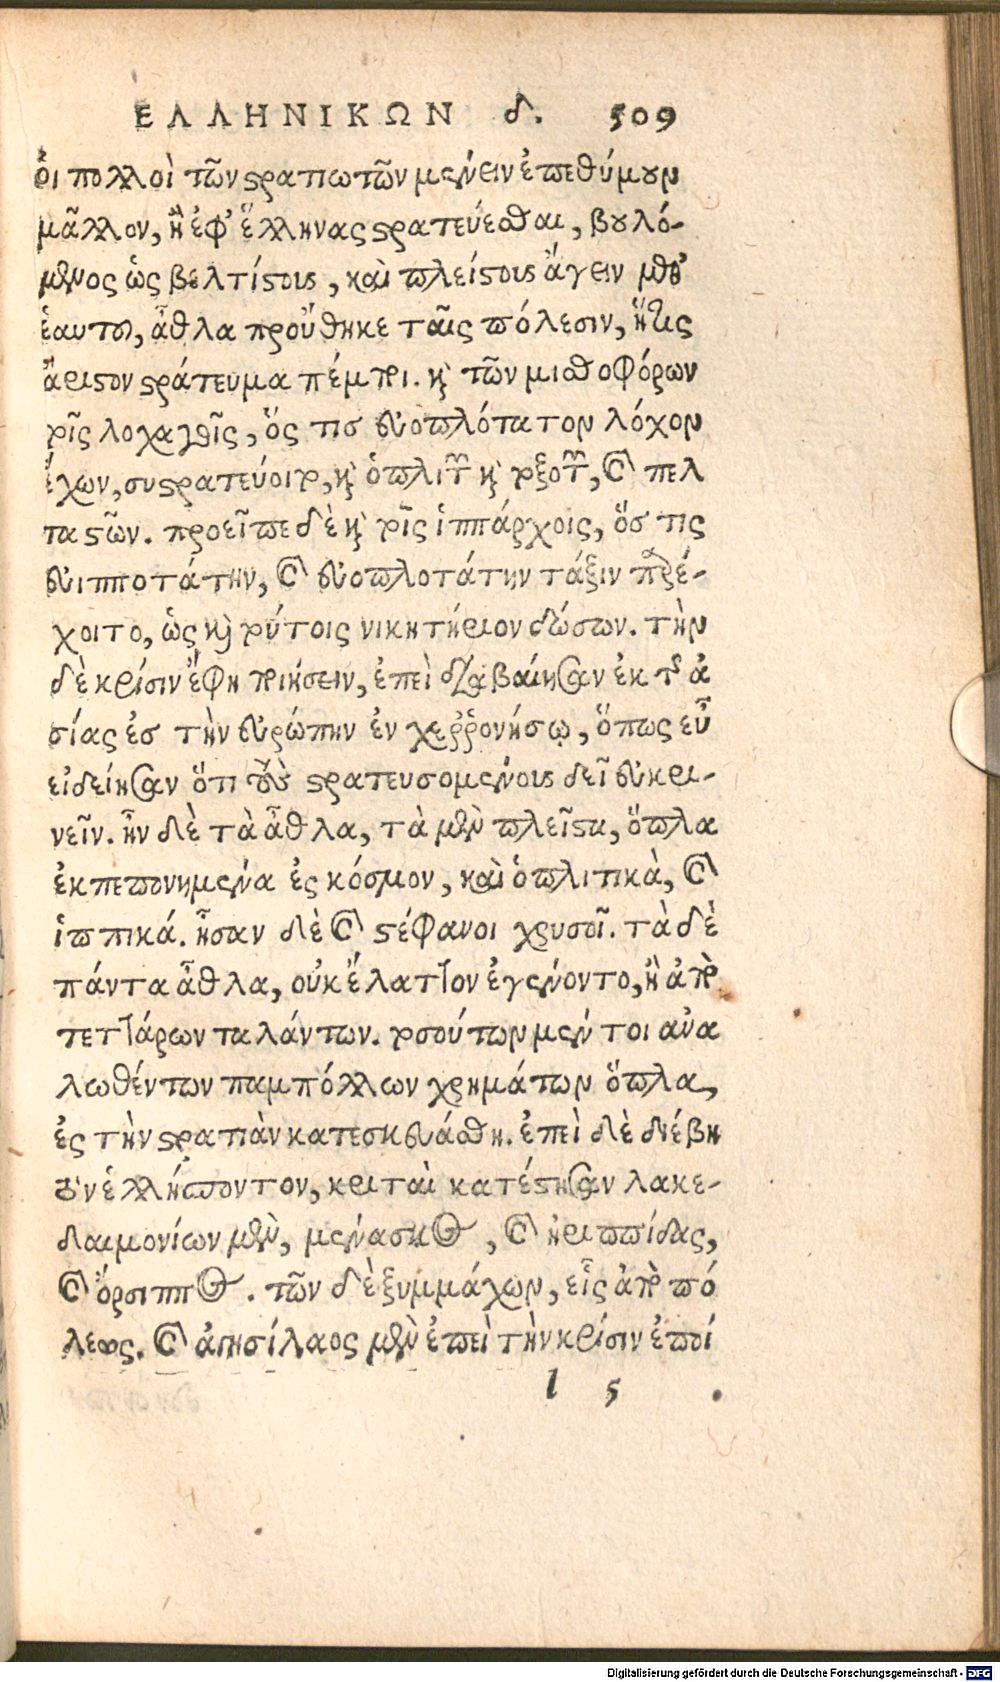 ΕΛΛΗΝΙΚΩΝ δ. 509
ὁι πολλοὶ τῶν στρατιωτῶν μένειν ἐπεθύμουν
μᾶλλον, ἢ ἐφ' ἕλληνας στρατεύεσθαι, βουλό-
μενος ὡς βελτίστους, καὶ πλείστους ἄγειν μεθ'
ἑαυτοῦ, ἆθλα προὔθηκε ταῖς πόλεσιν, ἥτις
ἄριστον στράτευμα πέμποι. καὶ τῶν μισθοφόρων
τοῖς λοχαγοῖς, ὅς τισ εὐοπλότατον λόχον
ἔχων, συστρατεύοιτο, καὶ ὁπλιτῶν καὶ τοξοτῶν, καὶ πελ
ταστῶν. προεῖπε δὲ καὶ τοῖς ἱππάρχοις, ὅσ τις
εὐιπποτάτην, καὶ εὐοπλοτάτην τάξιν παρέ-
χοιτο, ὡς καὶ τούτοις νικητήριον δώσων. τὴν
δὲ κρίσιν ἔφη ποιήσειν, ἐπεὶ διαβαίησαν ἐκ τῆς ἀ
σίας ἐσ τὴν εὐρώπην ἐν χερῤῥονήσῳ, ὅπως εὖ
εἰδείησαν ὅτι τοὺς στρατευσομένους δεῖ εὐκρι-
νεῖν. ἦν δὲ τὰ ἆθλα, τὰ μὲν πλεῖστα, ὅπλα
ἐκπεπονημένα ἐς κόσμον, καὶ ὁπλιτικὰ, καὶ
ἱππικά. ἦσαν δὲ καὶ στέφανοι χρυσοῖ. τὰ δὲ
πάντα ἆθλα, οὐκ ἔλαττον ἐγένοντο, ἢ ἀπὸ
τεττάρων ταλάντων. τοσούτων μέν τοι ἀνα
λωθέντων παμπόλλων χρημάτων ὅπλα,
ἐς τὴν στρατιὰν κατεσκευάσθη. ἐπεὶ δὲ διέβη
τὸν ἑλλήσποντον, κριταὶ κατέστησαν λακε-
δαιμονίων μὲν, μένασκος, καὶ ἠριππίδας,
καὶ ὄρσιππος. τῶν δὲ ξυμμάχων, εἷς ἀπὸ πό
λεως. καὶ ἀγησίλαος μὲν ἐπεὶ τὴν κρίσιν ἐποί
l 5
Digitalisierung gefördert durch die Deutsche Forschungsgemeinschaft - DFG